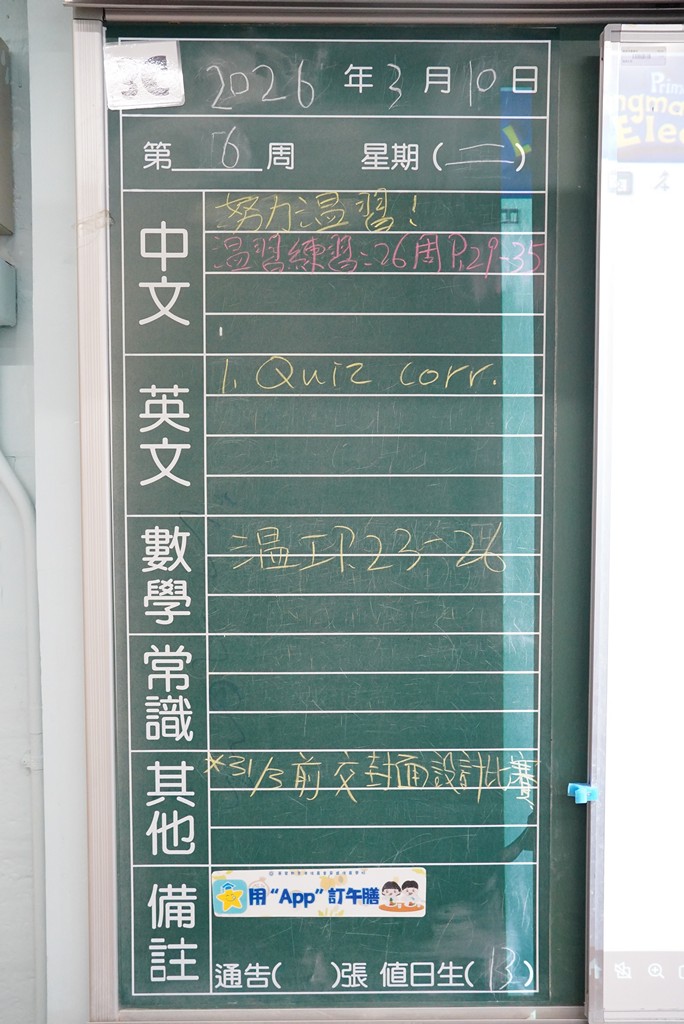 3C
2026年3月10日
第 26 周 星期(二)
中文
努力溫習！
溫習練習：26周P.29-35
英文
1. Quiz corr.
數學
溫工P.23-26
常識
其他
*31/3前交封面設計比賽
備註
用“App”訂午膳
通告( )張 值日生(13)
Prim
Elec